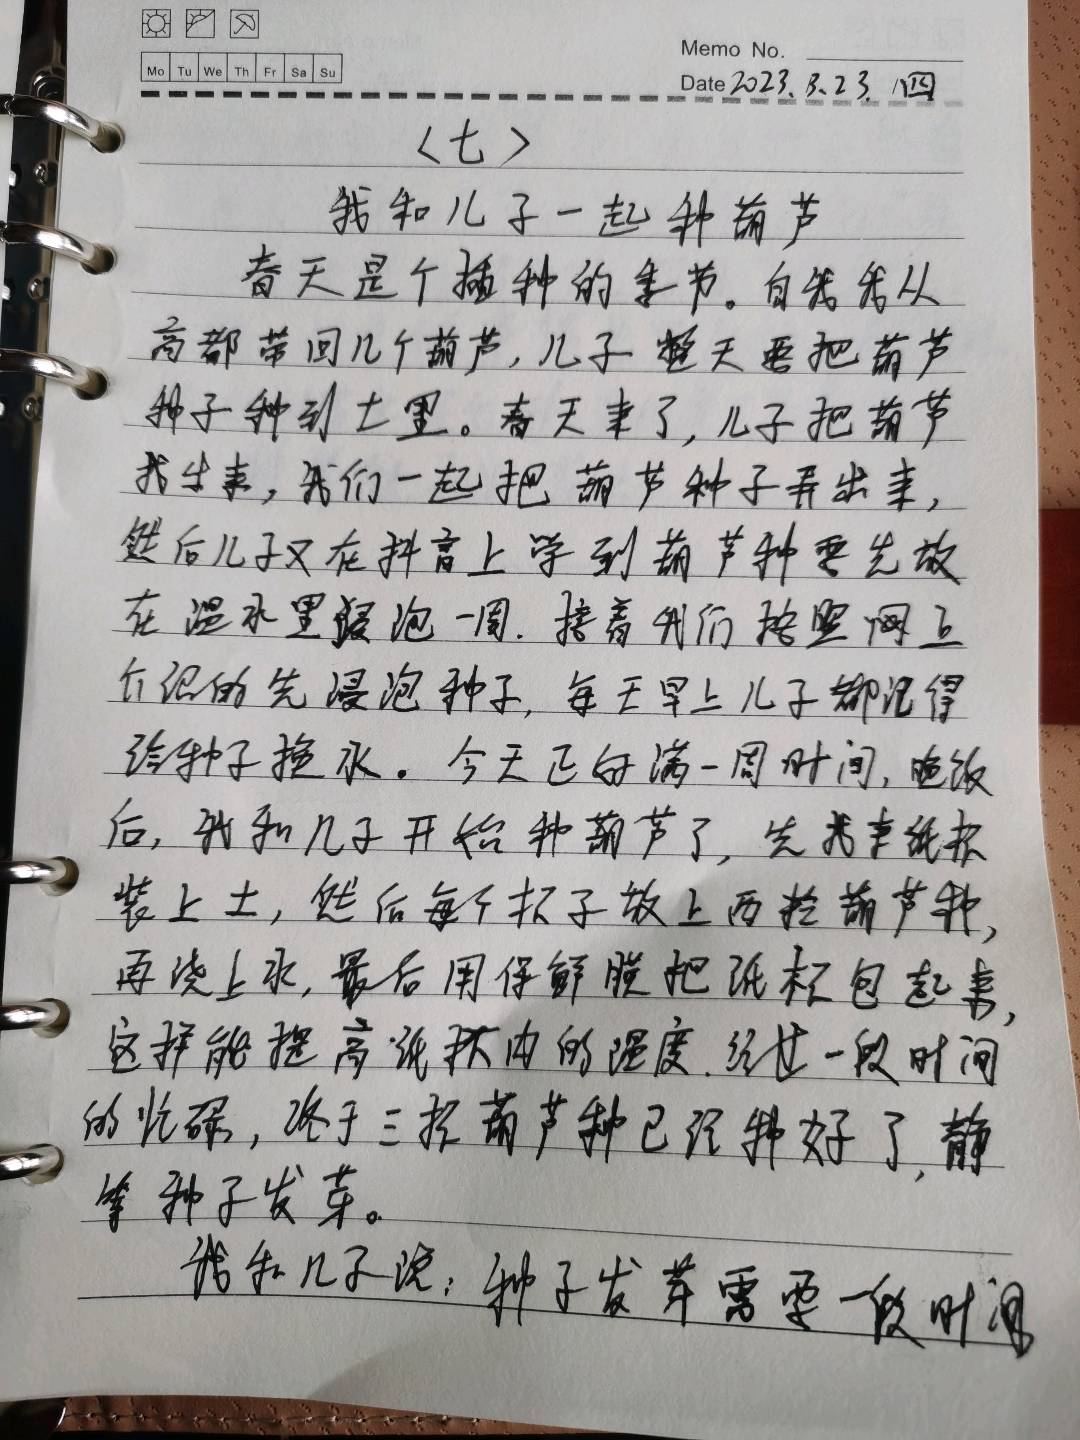 Mo Tu We Th Fr Sa Su
Memo No.
Date 2023.3.23. 四
<七>
我和儿子一起种葫芦
春天是个播种的季节。自我我从
高都带回几个葫芦,儿子整天要把葫芦
种子种到土里。春天来了,儿子把葫芦
找出来,我们一起把葫芦种子弄出来,
然后儿子又在抖音上学到葫芦种要先放
在温水里浸泡一周.接着我们按照网上
介绍的先浸泡种子,每天早上儿子都记得
给种子换水。今天正好满一周时间,晚饭
后,我和儿子开始种葫芦了,先找来纸杯
装上土,然后每个杯子放上两粒葫芦种,
再浇上水,最后用保鲜膜把纸杯包起来,
这样能提高纸杯内的温度.经过一段时间
的忙碌,终于三杯葫芦种已经种好了,静
等种子发芽。
我和儿子说:种子发芽需要一段时间